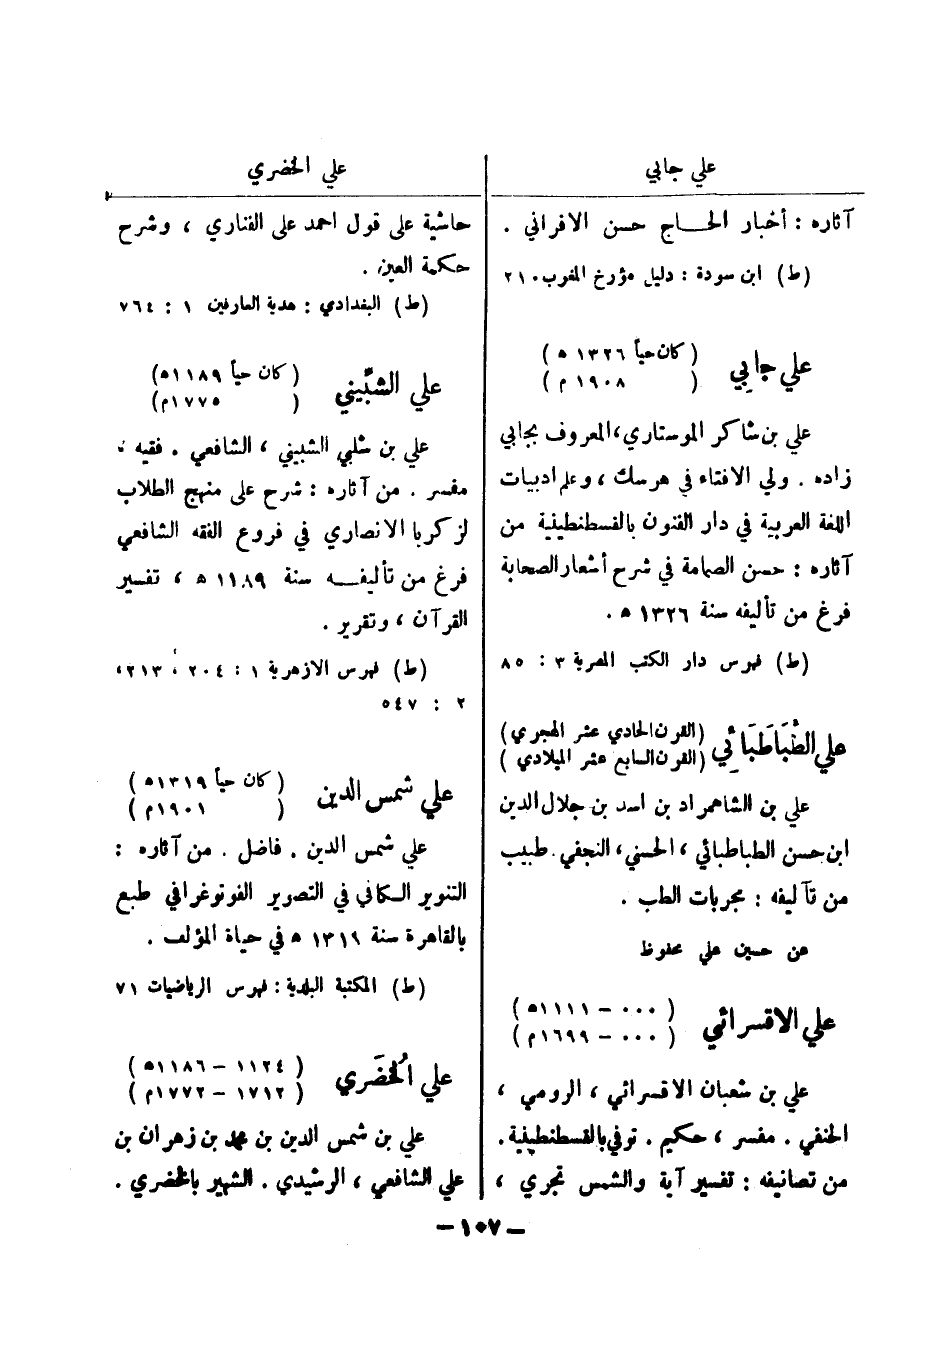 علي جابي
آثاره : أخبار الحـــاج حسن الافراني .
(ط) ابن سودة : دليل مؤرخ المغرب ٢١٠
علي جابي ( كان حياً ١٣٢٦ ه )
( ١٩٠٨ م )
علي بن شاكر الموستاري، المعروف بجابي
زاده . ولي الافتاء في هرسك ، وعلم ادبيات
اللغة العربية في دار الفنون بالقسطنطينية من
آثاره : حسن الصحابة في شرح أشعار الصحابة
فرغ من تأليفه سنة ١٣٢٦ ه .
(ط) فهرس دار الكتب المصرية ٣ : ٨٥
علي الطَّبَاطَبَائِي (القرن الحادي عشر الهجري )
(القرن السابع عشر الميلادي )
علي بن الشاهمراد بن اسد بن جلال الدين
ابن حسن الطباطبائي ، الحسني، النجفي . طبيب
من تآليفه : مجربات الطب .
عن حسين علي محفوظ
علي الاقسرائي ( ٠٠٠ – ١١١١ه )
( ٠٠٠ – ١٦٩٩م )
علي بن شعبان الاقسرائي ، الرومي ،
الحنفي . مفسر ، حكيم . توفي بالقسطنطينية .
من تصانيفه : تفسير آية والشمس تجري ،
علي الخضري
حاشية على قول احمد على الفناري ، وشرح
حكمة العين .
(ط) البغدادي : هدية العارفين ١ : ٧٦٤
علي الشبِّيني ( كان حياً ١١٨٩ه )
( ١٧٧٥م )
علي بن شلبي الشبيني ، الشافعي . فقيه ،
مفسر . من آثاره : شرح على منهج الطلاب
لزكريا الانصاري في فروع الفقه الشافعي
فرغ من تأليفـــه سنة ١١٨٩ ه ، تفسير
القرآن ، وتقرير .
(ط) فهرس الازهرية ١ : ٢٠٤ ، ٢١٣،
٢ : ٥٤٧
علي شمس الدين ( كان حياً ١٣١٩ه )
( ١٩٠١م )
علي شمس الدين . فاضل . من آثاره :
التنوير الكافي في التصوير الفوتوغرافي طبع
بالقاهرة سنة ١٣١٩ ه في حياة المؤلف .
(ط) المكتبة البلدية : فهرس الرياضيات ٧١
علي الخُضَري ( ١١٢٤ – ١١٨٦ه )
( ١٧١٢ – ١٧٧٢م )
علي بن شمس الدين بن محمد بن زهران بن
علي الشافعي ، الرشيدي . الشهير بالخضري .
– ١٠٧ –